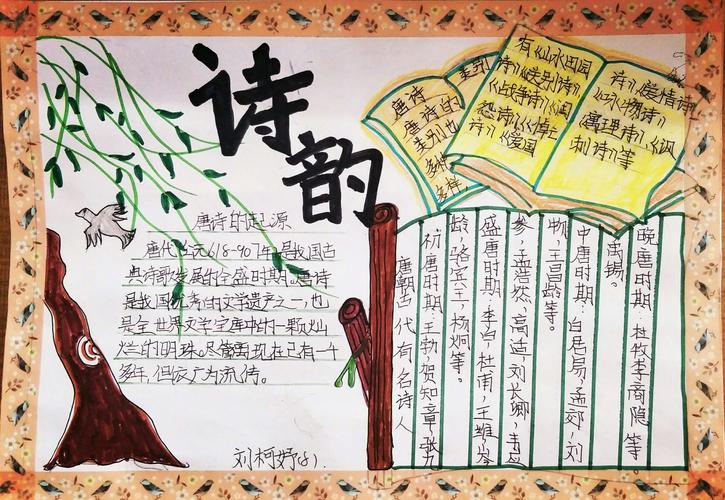 诗韵
唐诗的起源
唐代公元618-907年是我国古
典诗歌发展的全盛时期。唐诗
是我国优秀的文学遗产之一,也
是全世界文学宝库中的一颗灿
烂的明珠。尽管离现在已有一千
多年,但依广为流传。
刘柯妤(8).
唐诗
唐诗的
类别也
多种
多样
类别
有《山水田园
诗》《送别诗》
《战争诗》《闺
怨诗》《悼亡
诗》《爱国
诗》《爱情诗》
《咏物诗》
《寓理诗》《讽
刺诗》等
唐朝古代有名诗人
初唐时期:王勃,贺知章,张九
龄,骆宾王,杨炯等。
盛唐时期:李白,杜甫,王维,岑
参,孟浩然,高适,刘长卿,韦应
物,王昌龄等。
中唐时期:白居易,孟郊,刘
禹锡。
晚唐时期:杜牧李商隐等。